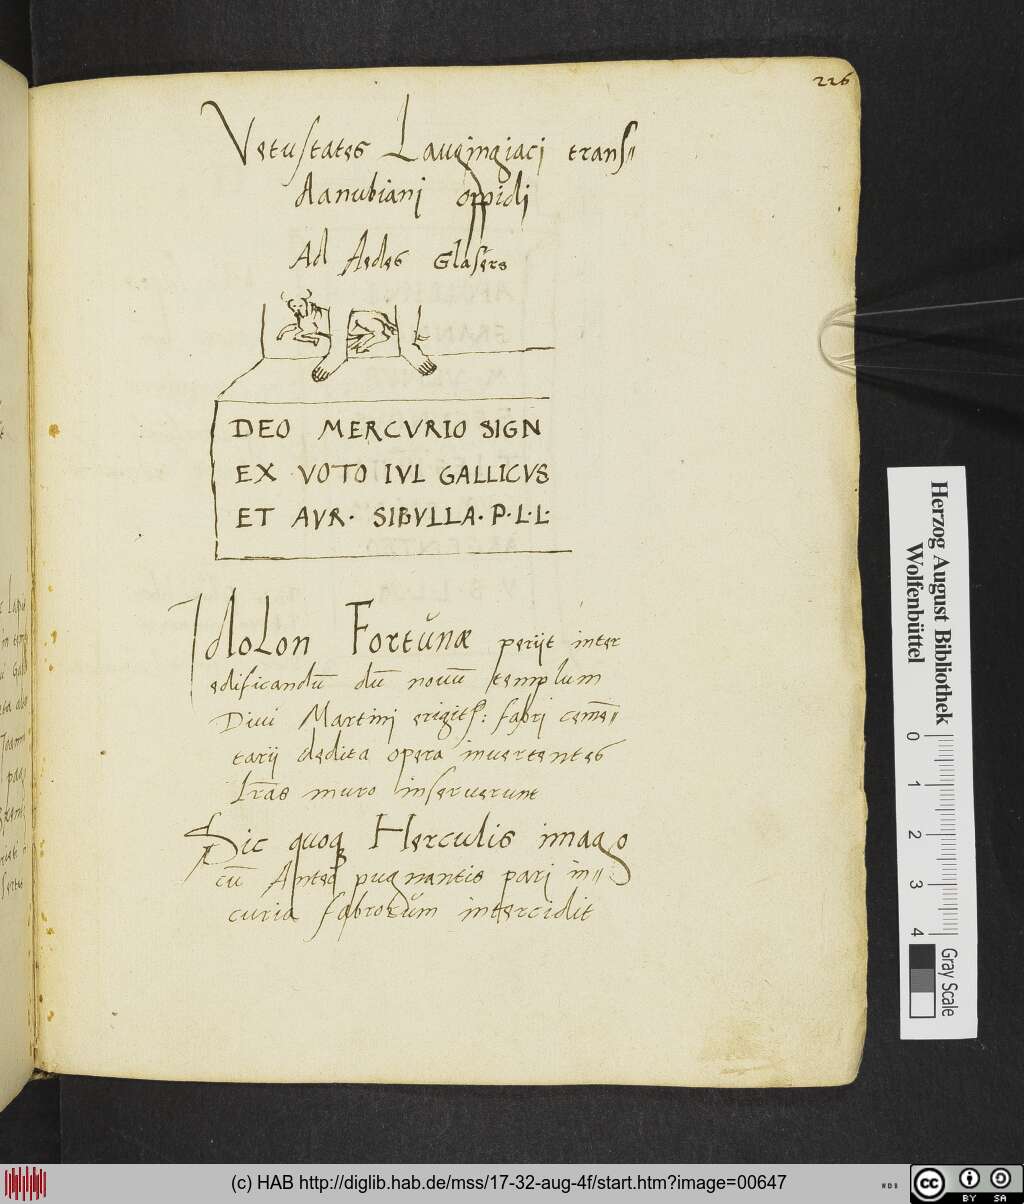 226
Vetustates Laugingiaci trans⸗
Danubianj oppidj
Ad Aedes Glasers
DEO MERCVRIO SIGN
EX VOTO IVL GALLICVS
ET AVR· SIBVLLA·P·L·L·
Idolon Fortunæ perijt inter
edificandū dū nouū templum
Diui Martinj erigitſ: fabri cemē⸗
tarij dedita opera inuertentes
Lr̄as muro inseruerunt
Sic quoqꝫ Herculis imago
cū Anteo pugnantis pari in⸗
curia fabrorum intercidit
Herzog August Bibliothek
Wolfenbüttel
0 1 2 3 4
Gray Scale
(c) HAB http://diglib.hab.de/mss/17-32-aug-4f/start.htm?image=00647
WDB
cc BY SA